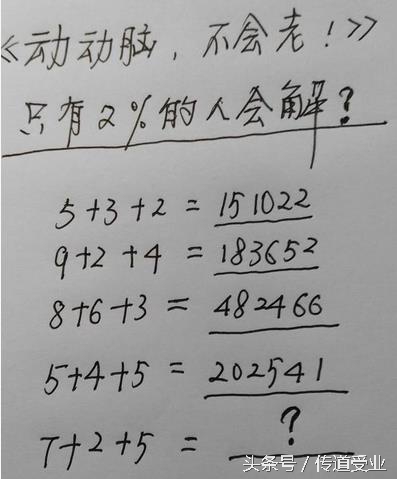 《动动脑，不会老！》
只有2%的人会解？
5+3+2 = 151022
9+2+4 = 183652
8+6+3 = 482466
5+4+5 = 202541
7+2+5 = ?
头条号 / 传道受业